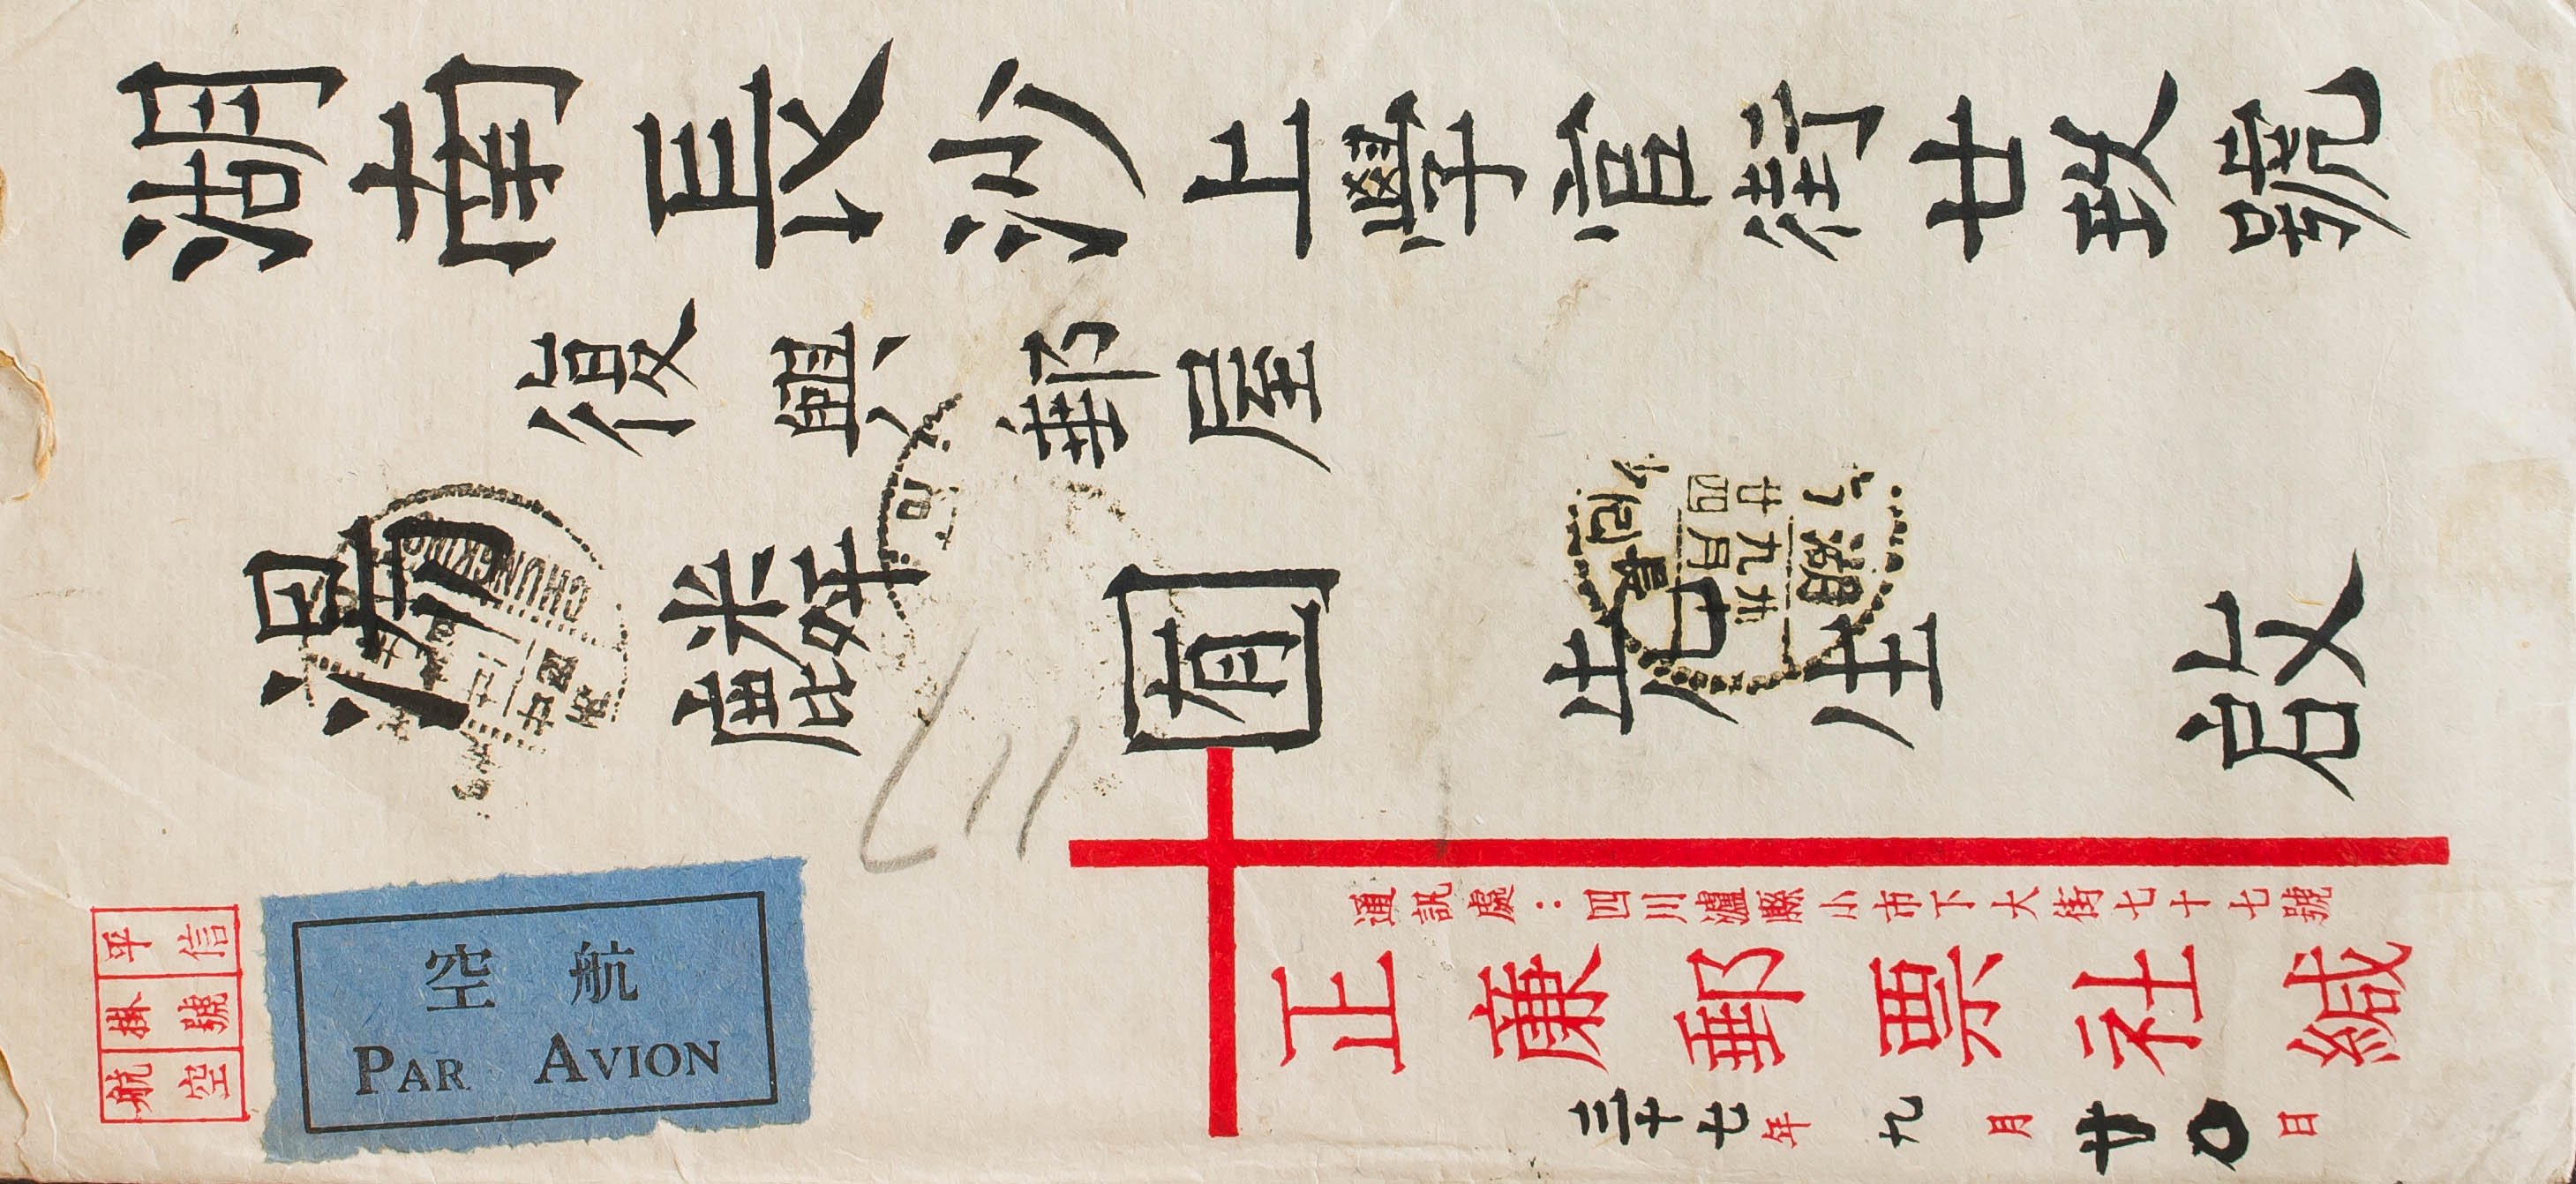 湖南長沙上學宮街廿玖號
復興郵屋
湯麟囿先生啟
通訊處：四川瀘縣小市下大街七十七號
正廉郵票社緘
三十七年九月廿〇日
平信
掛號
航空
航空
PAR AVION
CHUNGKING
湖
九月
廿四
長